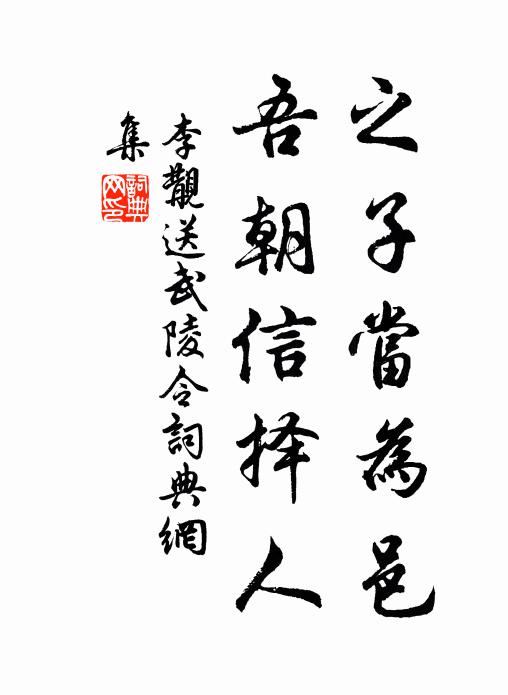 之子當為邑
吾朝信择人
李覯送武陵令詞典網
集
詞典
网印